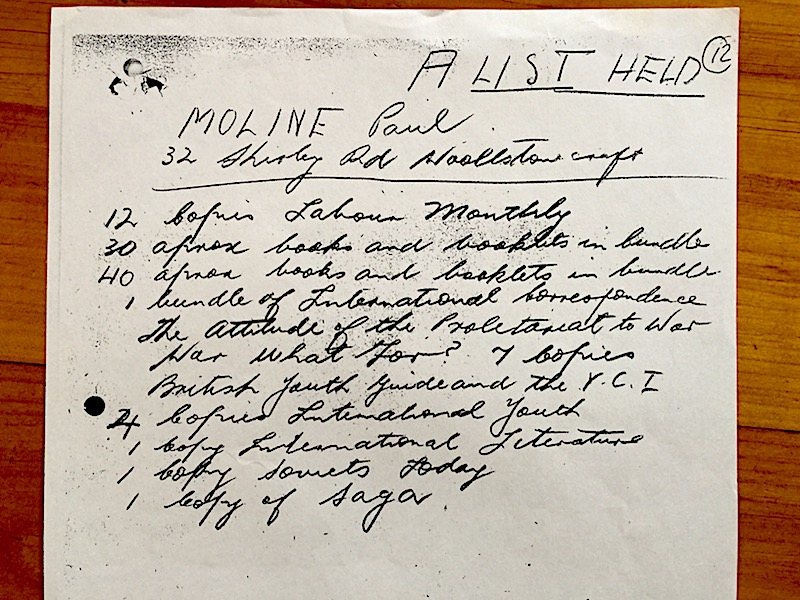 A LIST HELD 12
MOLINE Paul
32 Shirley Rd Woollstonecraft
12 Copies Labour Monthly
30 aprox books and booklets in bundle
40 aprox books and booklets in bundle
1 bundle of International Correspondence
The Attitude of the Proletariat to War
War What For? 7 Copies
British Youth Guide and the Y.C.I
4 Copies International Youth
1 Copy International Literature
1 Copy Soviets Today
1 Copy of Saga